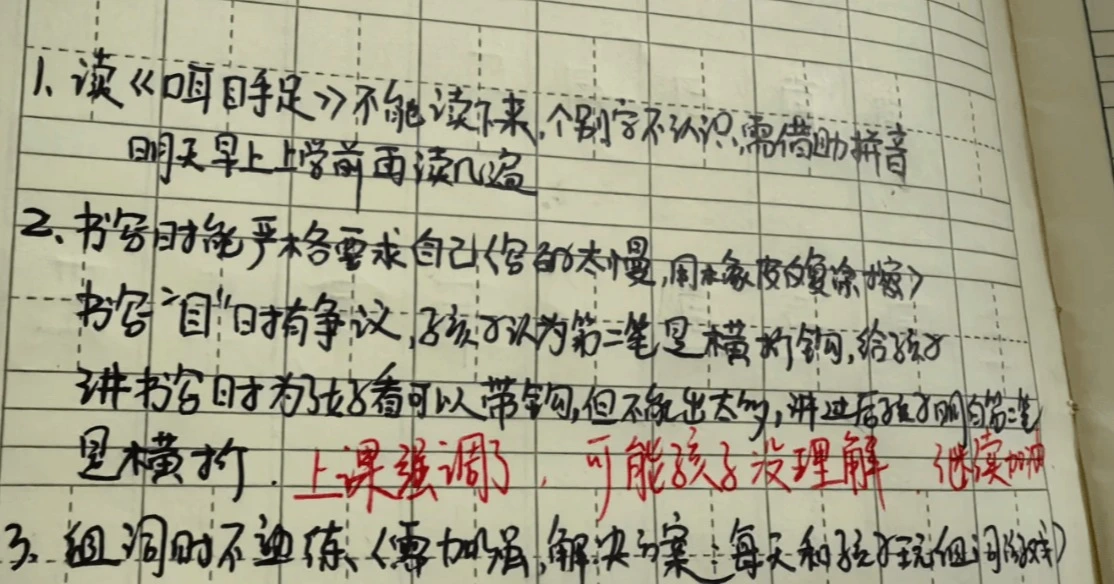 1、读《口耳目手足》不能读下来,个别字不认识,需借助拼音
明天早上上学前再读几遍
2、书写时能严格要求自己(写的太慢,用橡皮反复涂擦)
书写“目”时有争议,孩子认为第二笔是横折钩,给孩子
讲书写时为了好看可以带钩,但不能出太多,讲过后孩子明白第二笔
是横折. 上课强调了,可能孩子没理解 继续加油
3、组词时不熟练、(需加强,解决方案:每天和孩子玩组词游戏)